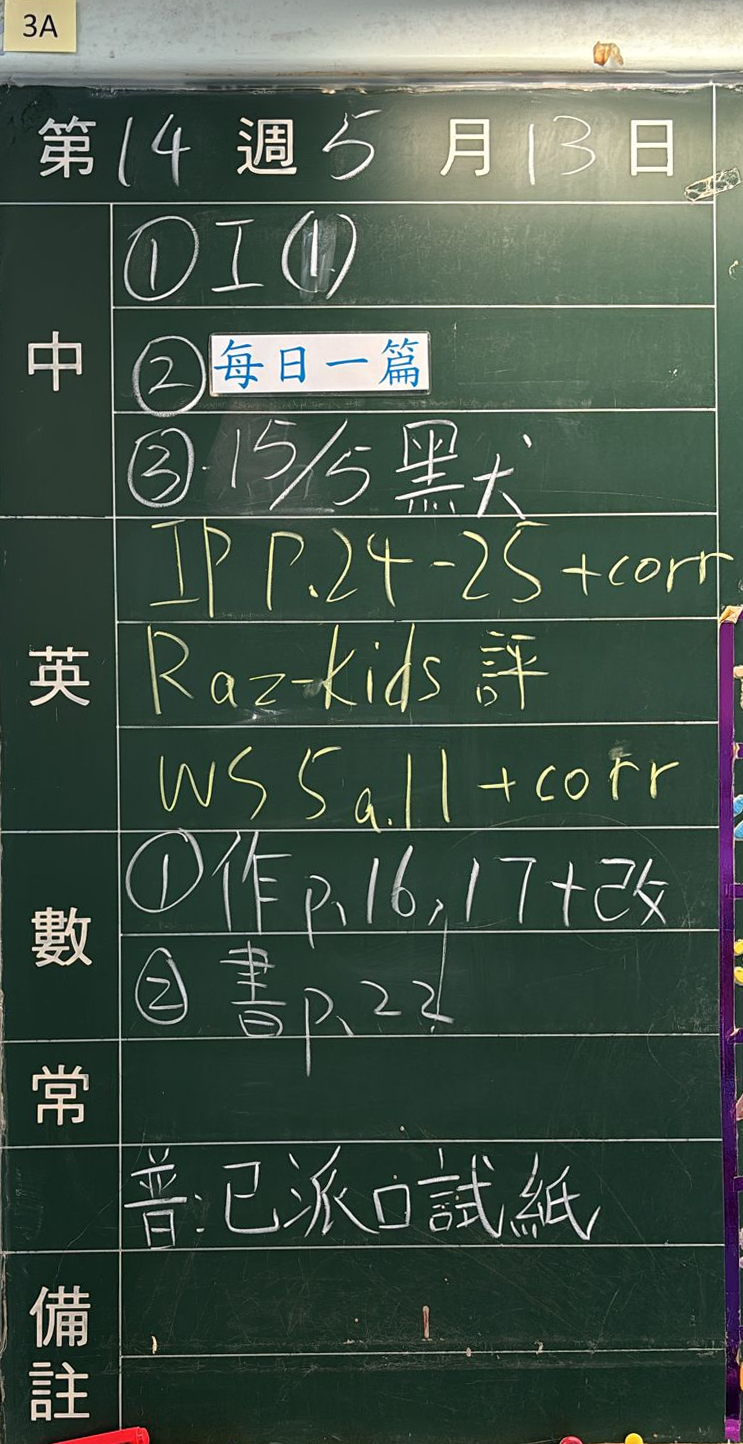 3A
第14週5月13日
中
①工(1)
②每日一篇
③15/5黑犬
英
IP P.24-25+corr
Raz-kids 評
WS 5a.11+corr
數
①作p.16,17+改
②書p.22
常
普:已派口試紙
備註